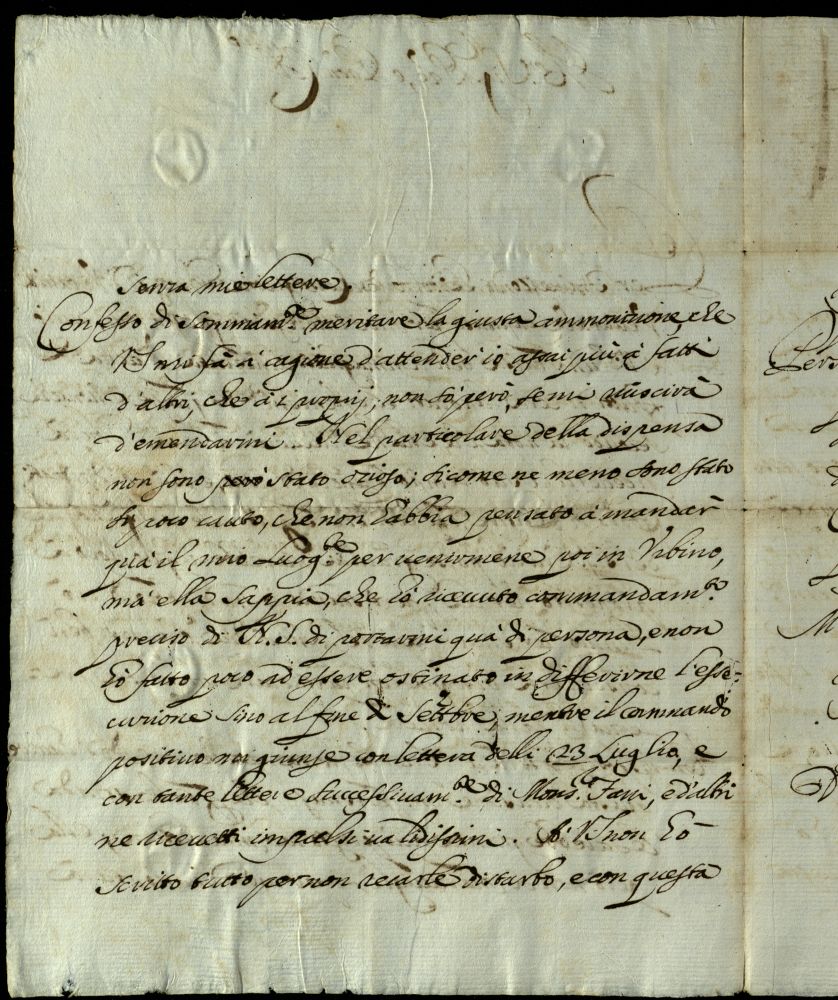 senza mie lettere,
Confesso di sommam.te meritare la giusta ammonitione, che
V.S. mi fà à cagione d'attender' io assai più à fatti
d'altri, che à i proprij, non sò però, se mi riuscirà
d'emendarmi. Nel particolare della dispensa
non sono però stato otioso; sicome ne meno sono stato
sì poco cauto, che non habbia pensato à mandar
quà il mio Luog.te per venirmene poi in Urbino,
mà ella sappia, che hò ricevuto commandam.to
preciso di N.S. di portarmi quà di persona, e non
hò fatto poco ad essere ostinato in differirne l'esse=
cutione sino al fine di Settbre, mentre il commando
positivo mi giunse con lettera delli 23 Luglio, e
con tante lettere successivam.te di Mons.r Fani, e d'altri
ne ricevetti impulsi validissimi. A V.S. non hò
scritto tutto per non recarle disturbo, e con questa